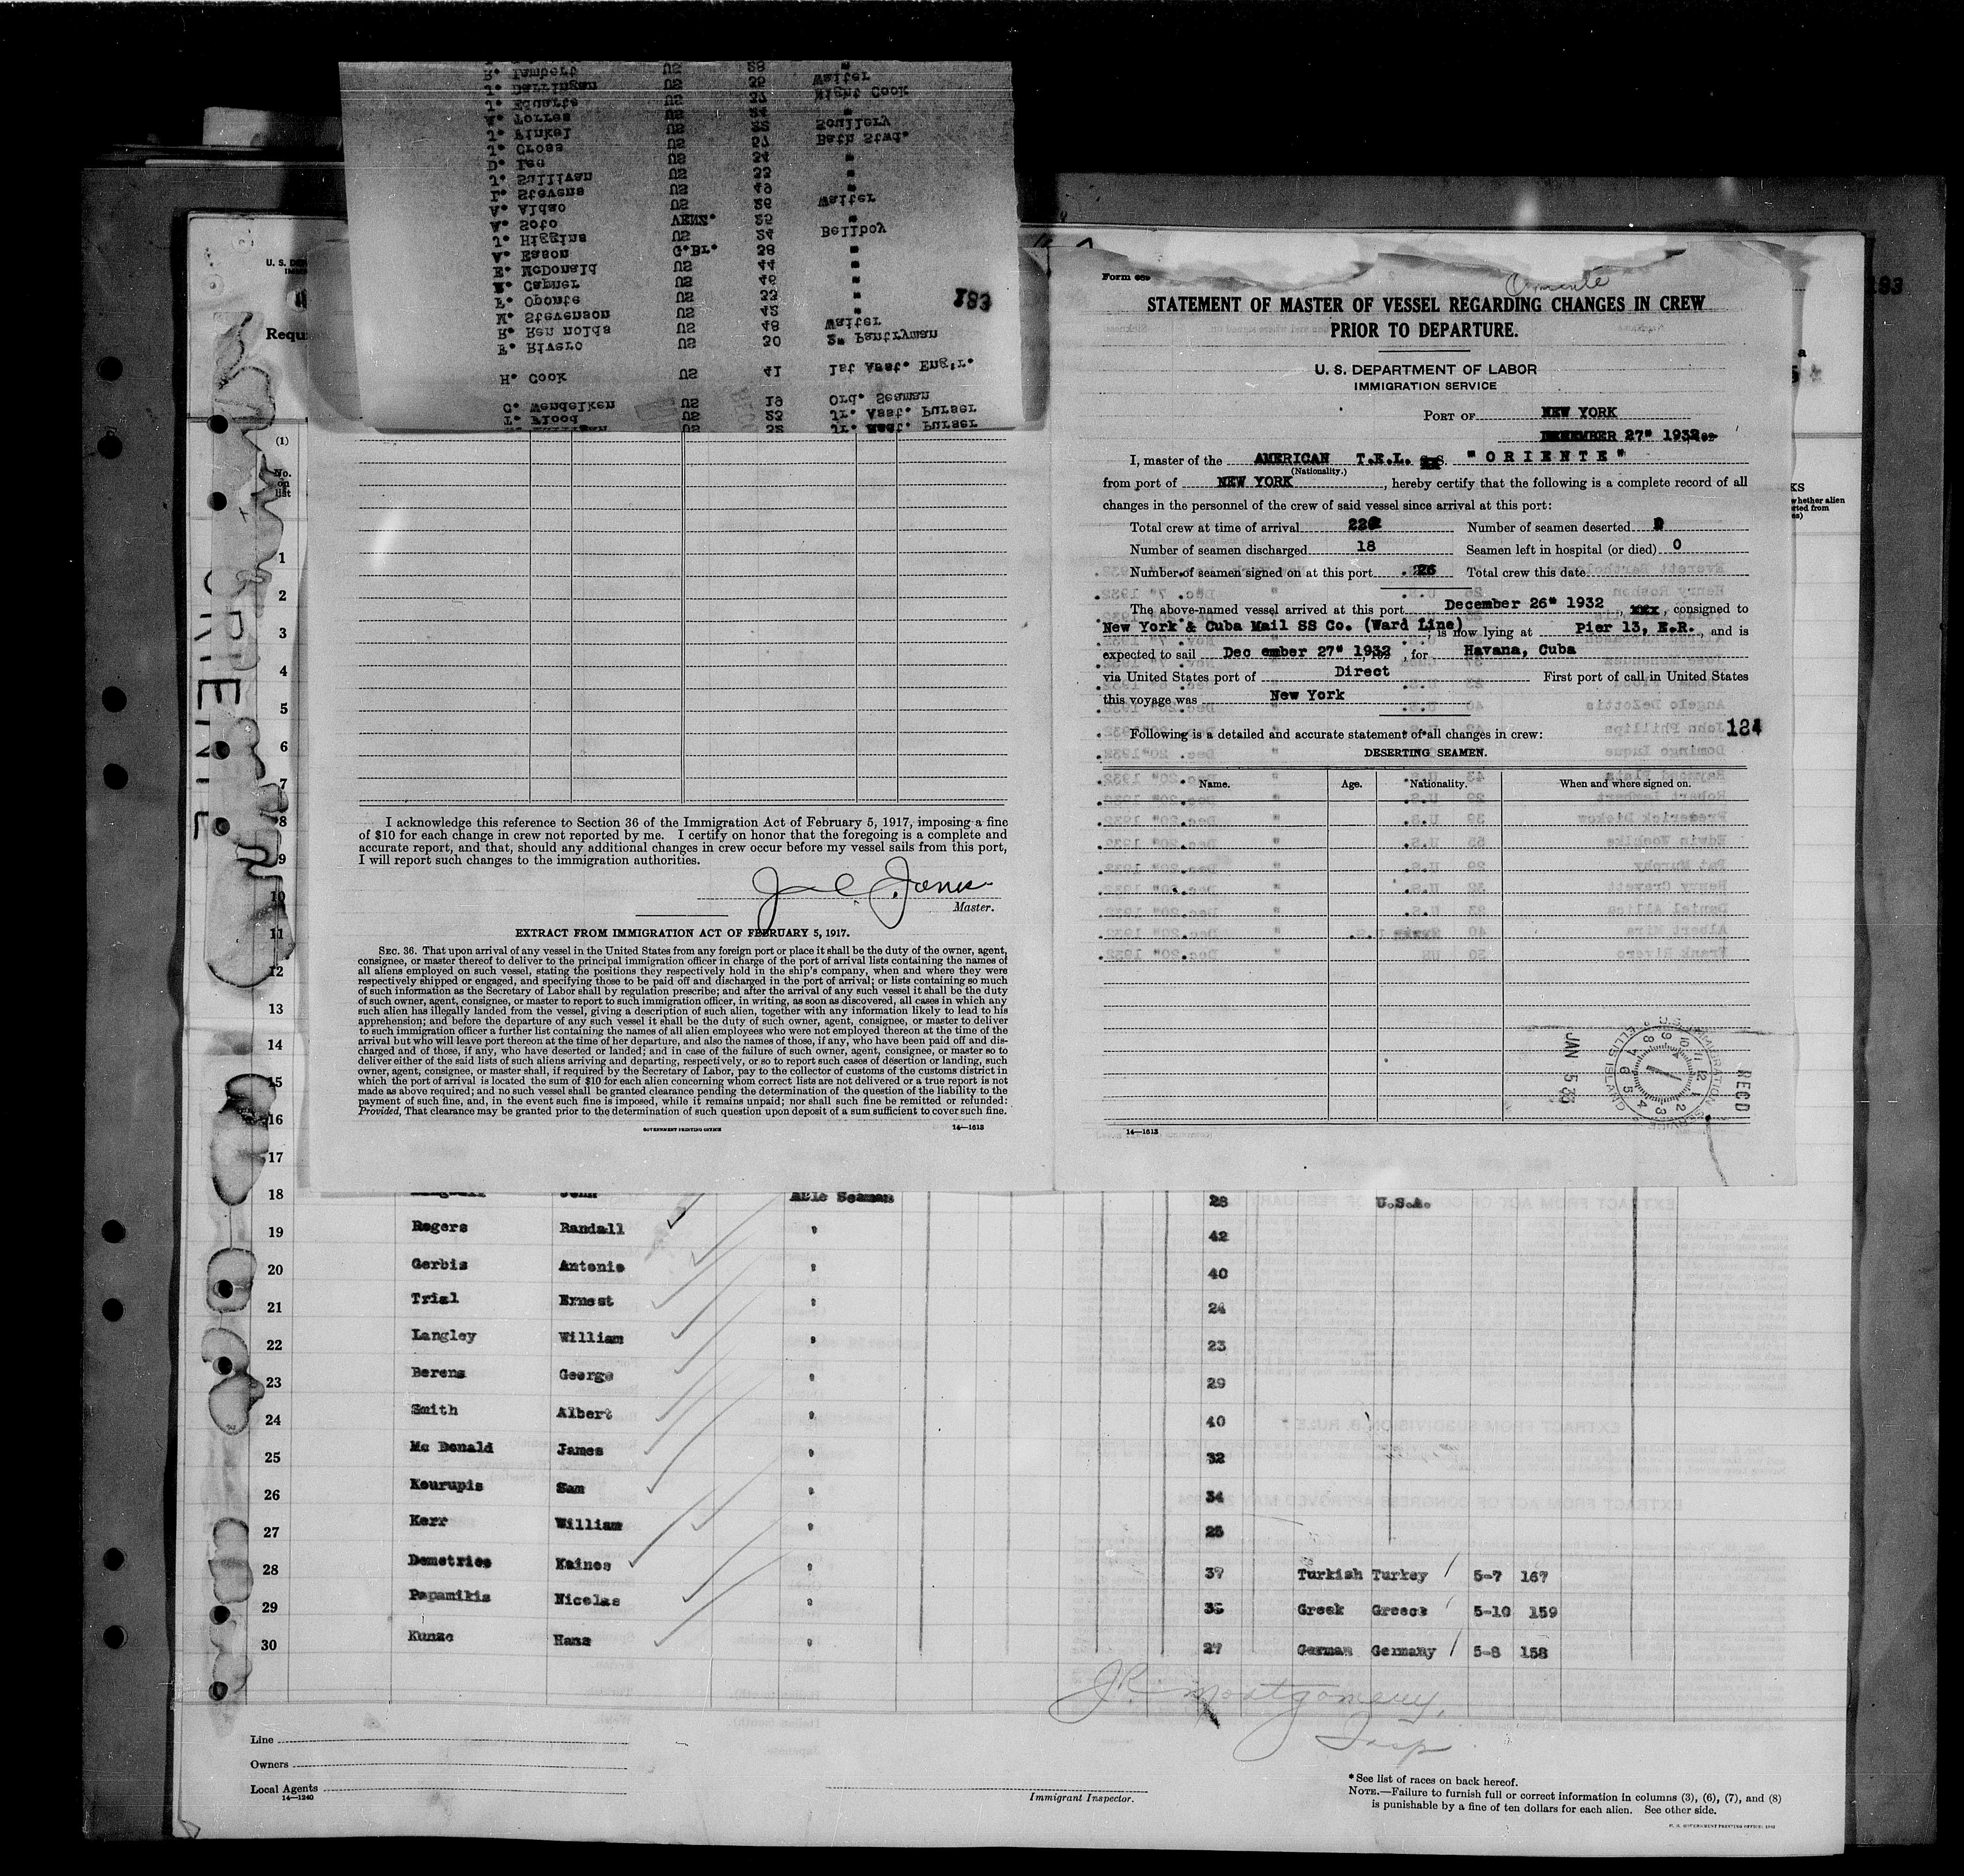 R. Lambert US 28 "
J. Darringan US 35 Waiter
J. Eduarte US 27 Night Cook
W. Torres US 24 "
J. Finkel US 22 Scullery
J. Cross US 57 Bath Stwd.
D. Lee US 24 "
J. Sullivan US 33 "
F. Stevens US 49 "
V. Aldao US 26 Waiter
V. Soto VENZ. 25 "
J. Higgins US 24 Bellboy
V. Eason G.Br. 28 "
E. McDonald US 44 "
Capner US 46 "
F. Oponte US 33 "
M. Stevenson US 42 "
R. Ren nolds US 48 Waiter
F. Rivero US 30 2" Pantryman
H. Cook US 41 1st Asst. Eng'r.
C. Wendelken US 19 Ord. Seaman
T. Flood US 23 Jr. Asst. Purser
US 32 Jr. Asst. Purser
193
U. S. DE
Requ
(1)
No. on list
ORIENTE
I acknowledge this reference to Section 36 of the Immigration Act of February 5, 1917, imposing a fine
of $10 for each change in crew not reported by me. I certify on honor that the foregoing is a complete and
accurate report, and that, should any additional changes in crew occur before my vessel sails from this port,
I will report such changes to the immigration authorities.
Jones
Master.
EXTRACT FROM IMMIGRATION ACT OF FEBRUARY 5, 1917.
SEC. 36. That upon arrival of any vessel in the United States from any foreign port or place it shall be the duty of the owner, agent,
consignee, or master thereof to deliver to the principal immigration officer in charge of the port of arrival lists containing the names of
all aliens employed on such vessel, stating the positions they respectively hold in the ship's company, when and where they were
respectively shipped or engaged, and specifying those to be paid off and discharged in the port of arrival; or lists containing so much
of such information as the Secretary of Labor shall by regulation prescribe; and after the arrival of any such vessel it shall be the duty
of such owner, agent, consignee, or master to report to such immigration officer, in writing, as soon as discovered, all cases in which any
such alien has illegally landed from the vessel, giving a description of such alien, together with any information likely to lead to his
apprehension; and before the departure of any such vessel it shall be the duty of such owner, agent, consignee, or master to deliver
to such immigration officer a further list containing the names of all alien employees who were not employed thereon at the time of the
arrival but who will leave port thereon at the time of her departure, and also the names of those, if any, who have been paid off and dis-
charged and of those, if any, who have deserted or landed; and in case of the failure of such owner, agent, consignee, or master so to
deliver either of the said lists of such aliens arriving and departing, respectively, or so to report such cases of desertion or landing, such
owner, agent, consignee, or master shall, if required by the Secretary of Labor, pay to the collector of customs of the customs district in
which the port of arrival is located the sum of $10 for each alien concerning whom correct lists are not delivered or a true report is not
made as above required; and no such vessel shall be granted clearance pending the determination of the question of the liability to the
payment of such fine, and, in the event such fine is imposed, while it remains unpaid; nor shall such fine be remitted or refunded:
Provided, That clearance may be granted prior to the determination of such question upon deposit of a sum sufficient to cover such fine.
GOVERNMENT PRINTING OFFICE 14—1613
Form
Oriente
STATEMENT OF MASTER OF VESSEL REGARDING CHANGES IN CREW
PRIOR TO DEPARTURE.
U. S. DEPARTMENT OF LABOR
IMMIGRATION SERVICE
PORT OF NEW YORK
DECEMBER 27" 1932
I, master of the AMERICAN T.E.L. S.S. "ORIENTE"
(Nationality.)
from port of NEW YORK, hereby certify that the following is a complete record of all
changes in the personnel of the crew of said vessel since arrival at this port:
Total crew at time of arrival Number of seamen deserted
Number of seamen discharged 18 Seamen left in hospital (or died) 0
Number of seamen signed on at this port 26 Total crew this date
The above-named vessel arrived at this port December 26" 1932, xxx, consigned to
New York & Cuba Mail SS Co. (Ward Line), is now lying at Pier 13, E.R., and is
expected to sail Dec ember 27" 1932, for Havana, Cuba
via United States port of Direct First port of call in United States
this voyage was New York
184
Following is a detailed and accurate statement of all changes in crew:
DESERTING SEAMEN.
Name. Age. Nationality. When and where signed on.
14—1613
JAN 5 33
U.S. IMMIGRATION SERVICE ELLIS ISLAND
RECD
193
KS
whether alien
rted from
es)
1
2
3
4
5
6
7
8
9
10
11
12
13
14
15
16
17
18 John Able Seaman 28 U.S.A.
19 Rogers Randall " 42
20 Gerbis Antonio " 40
21 Trial Ernest " 24
22 Langley William " 23
23 Berens George " 29
24 Smith Albert " 40
25 Mc Donald James " 32
26 Kourupis Sam " 34
27 Kerr William " 25
28 Demetrios Kainos " 37 Turkish Turkey 5-7 167
29 Papamikis Nicolas " 35 Greek Greece 5-10 159
30 Kunze Hans " 27 German Germany 5-8 158
J.R. Montgomery,
Insp.
Line
Owners
Local Agents
14—1240
Immigrant Inspector.
* See list of races on back hereof.
NOTE.—Failure to furnish full or correct information in columns (3), (6), (7), and (8)
is punishable by a fine of ten dollars for each alien. See other side.
U. S. GOVERNMENT PRINTING OFFICE